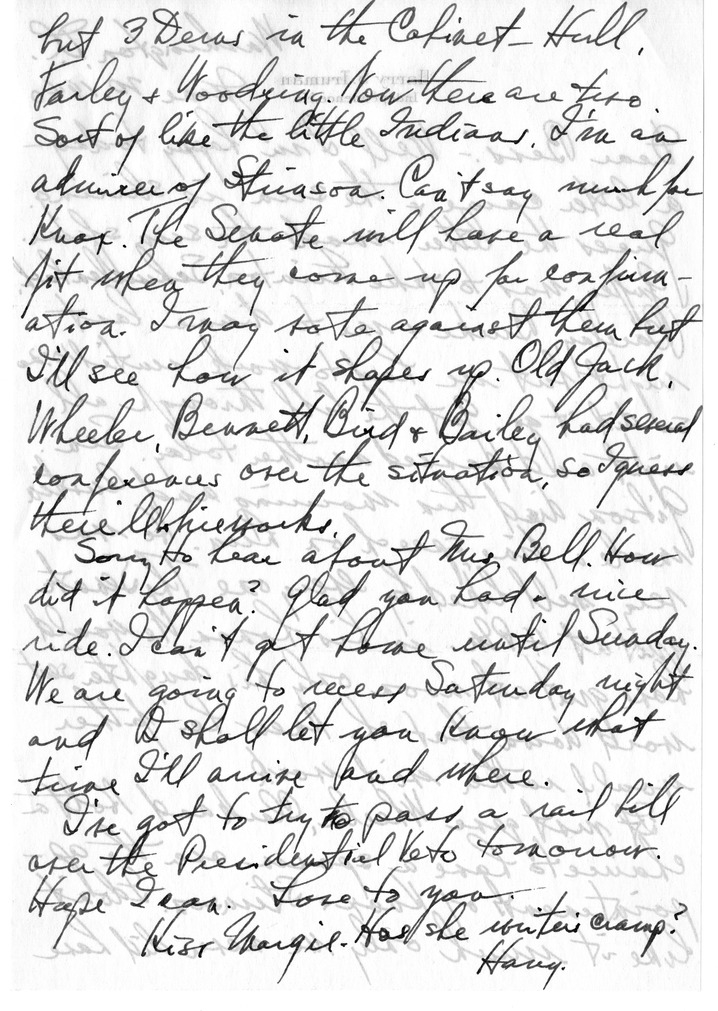 but 3 Dems in the Cabinet - Hull,
Farley & Woodring. Now there are two.
Sort of like the little Indians. I'm an
admirer of Stimson. Can't say much for
Knox. The Senate will have a real
fit when they come up for confirm-
ation. I may vote against them but
I'll see how it shapes up. Old Jack,
Wheeler, Bennett, Bird & Bailey had several
conferences over the situation, so I guess
there'll be fireworks.
Sorry to hear about Mrs Bell. How
did it happen? Glad you had a nice
ride. I can't get home until Sunday.
We are going to recess Saturday night
and I shall let you know what
time I'll arrive and where.
I've got to try to pass a rail bill
over the Presidential Veto tomorrow.
Hope I can. Love to you.
Kiss Margie. Has she writer's cramp?
Harry.